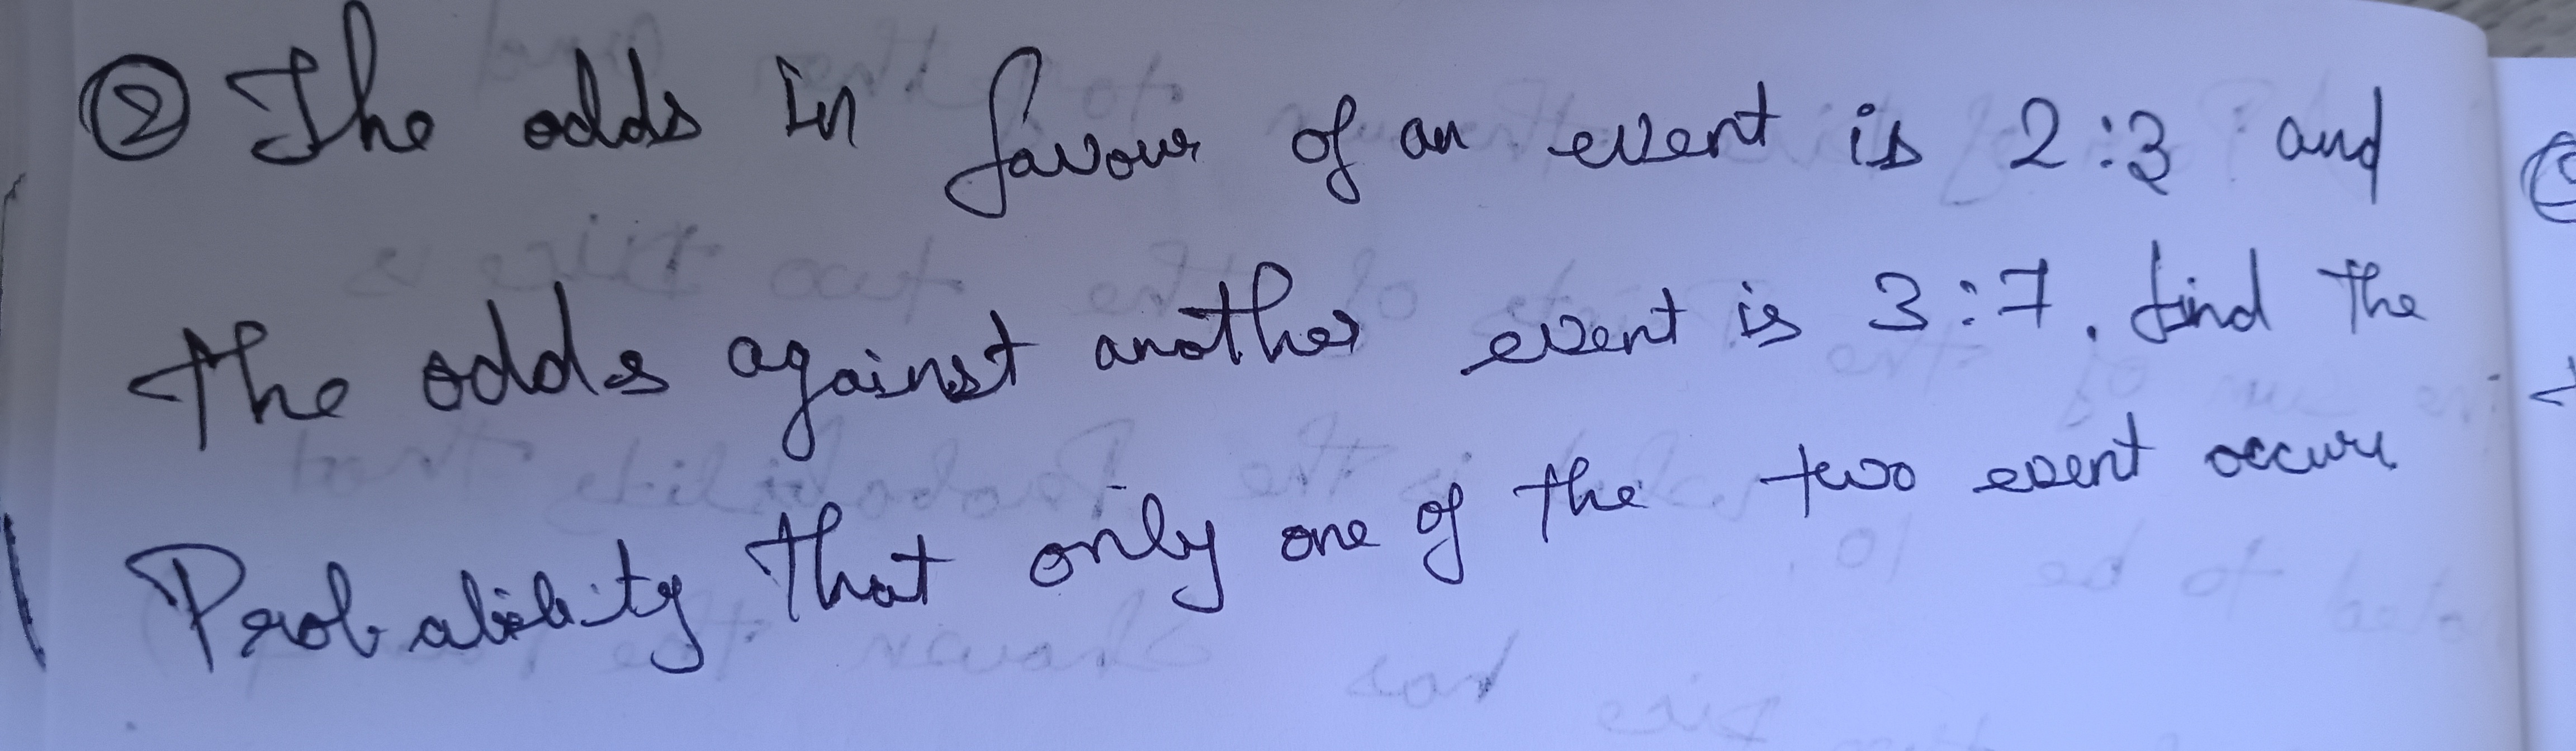 ② The odds in favour of an event is 2:3 and
the odds against another event is 3:7. find the
Probability that only one of the two event occurs